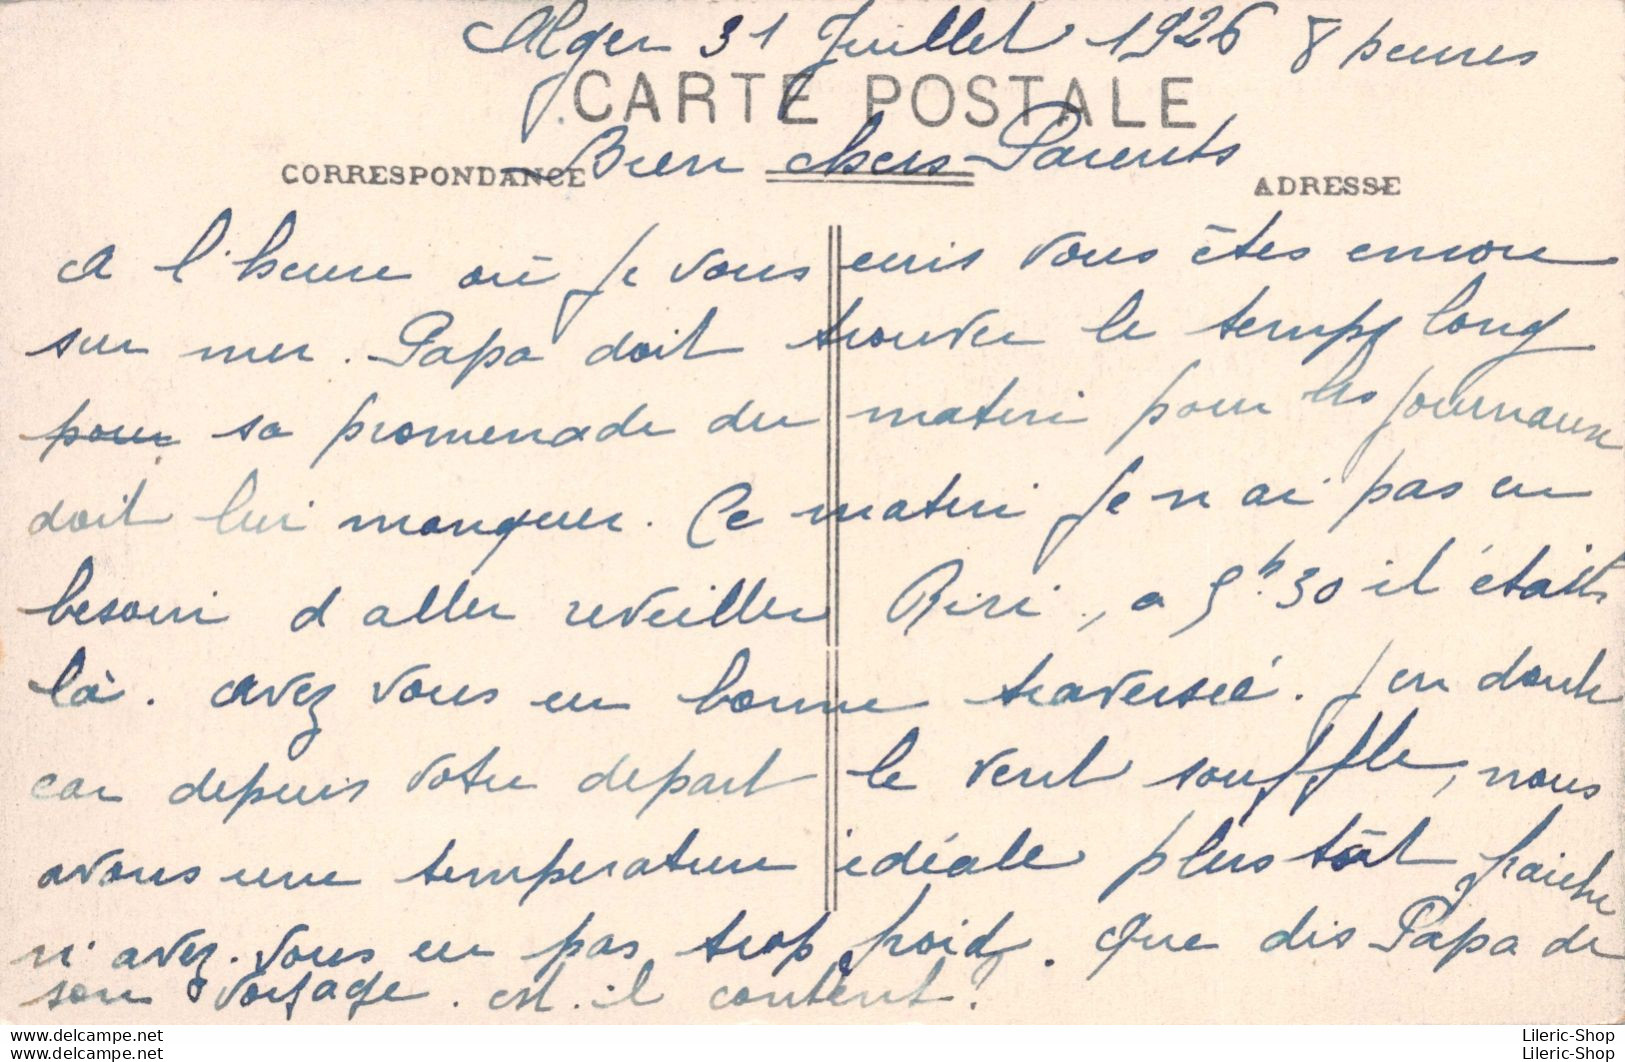 Alger 31 Juillet 1926 8 heures
CARTE POSTALE
Bien chers Parents
CORRESPONDANCE
ADRESSE
A l'heure où je vous ecris vous êtes encore
sur mer. Papa doit trouver le temps long
pour sa promenade du matin pour les journaux
doit lui manquer. Ce matin je n ai pas eu
besoin d aller reveiller Riri, a 5h30 il était
là. avez vous eu bonne traversée. J en doute
car depuis votre depart le vent souffle, nous
avons une temperature idéale plus tôt fraiche
n'avez-vous eu pas trop froid. Que dis Papa de
son voyage. est-il content?
Lileric-Shop
Lileric-Shop
www.delcampe.net
www.delcampe.net